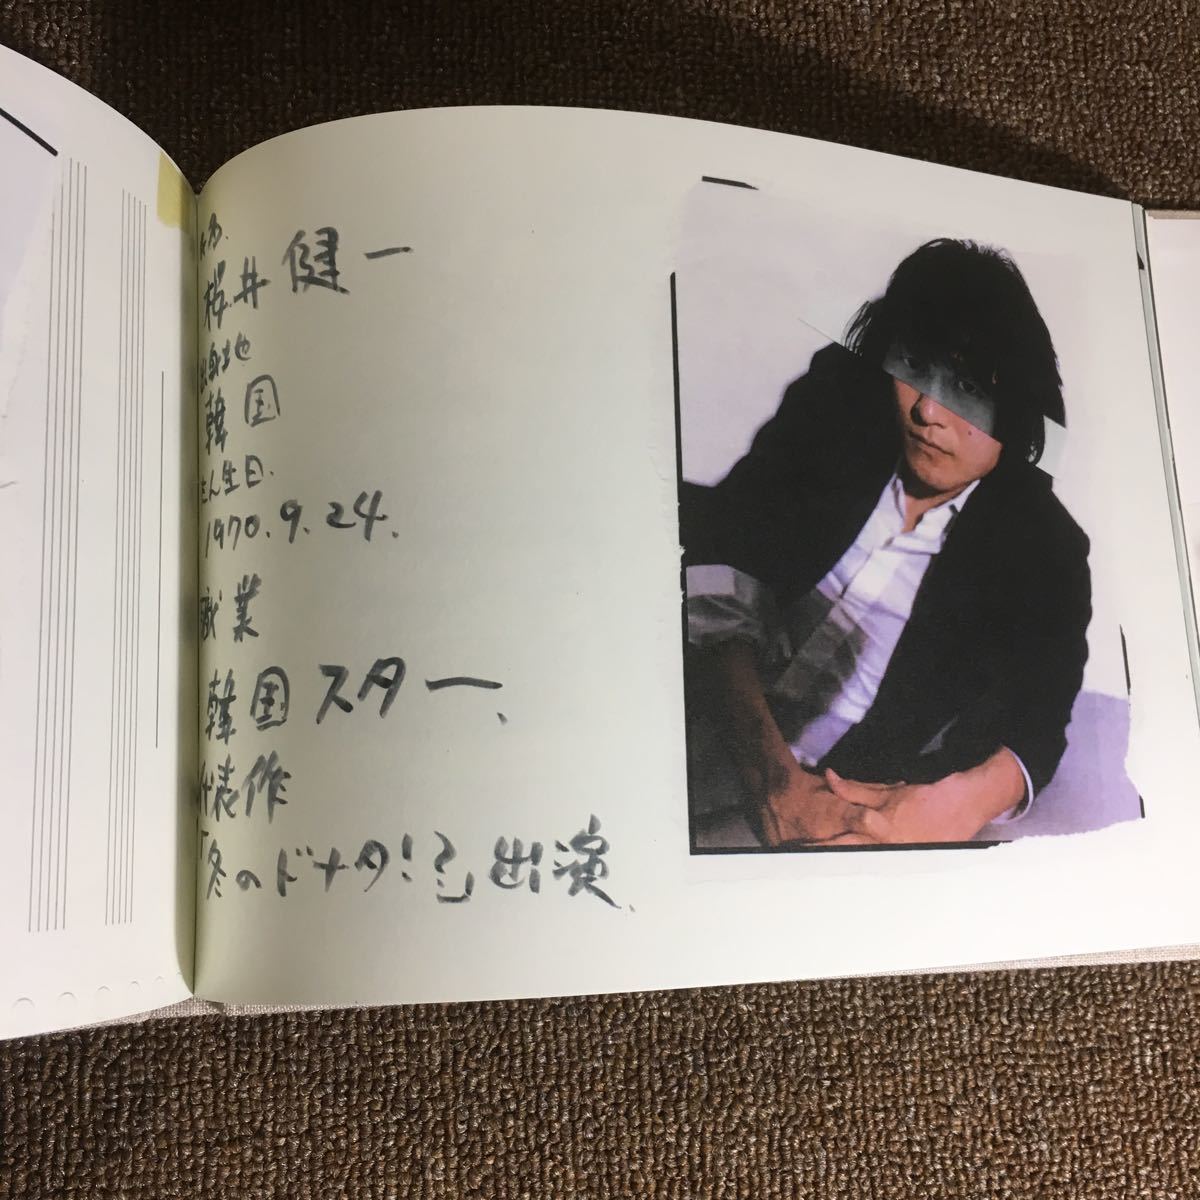 桜井健一
出身地
韓国
たん生日.
1970.9.24.
職業
韓国スター、
代表作
「冬のドナタ!?」出演、